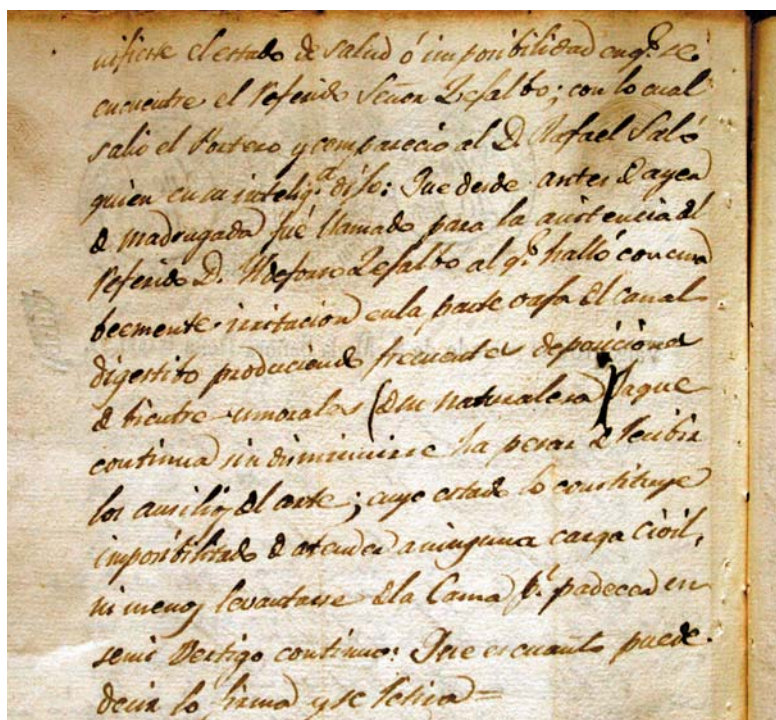 nifieste el estado de salud ó imposibilidad en q.e se
encuentre el referido Señor Zefalbo; con lo cual
salio el Portero y compareció al D. Rafael Saló
quien en su intelig.a dijo: Que desde antes de ayer
de madrugada fué llamado para la asistencia del
referido D. Yldefonso Zefalbo al q.e halló con una
beemente irritacion en la parte vafa del canal
digestibo produciendo frecuentes deposiciones
de bientre umorales (de su naturaleza) la que
continua sin disminuirse ha pesar de recibir
los ausilios del arte; cuyo estado lo constituye
imposibilitado de atender a ninguna carga civil,
ni menos levantarse de la Cama p.r padecer un
semi vertigo continuo: Que es cuanto puede
decir lo firma y se retira =